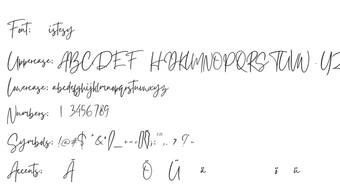 Font: istesy
Uppercase: ABCDEF HIJKLMNOPQRSTUVW . YZ
Lowercase: abcdefghijklmnopqrstuvwxyz
Numbers: 1 3456789
Symbols: !@#$ "&*()_+-=[]{};:'",. ? -
Accents: Ã Õ Ü ä ö ü